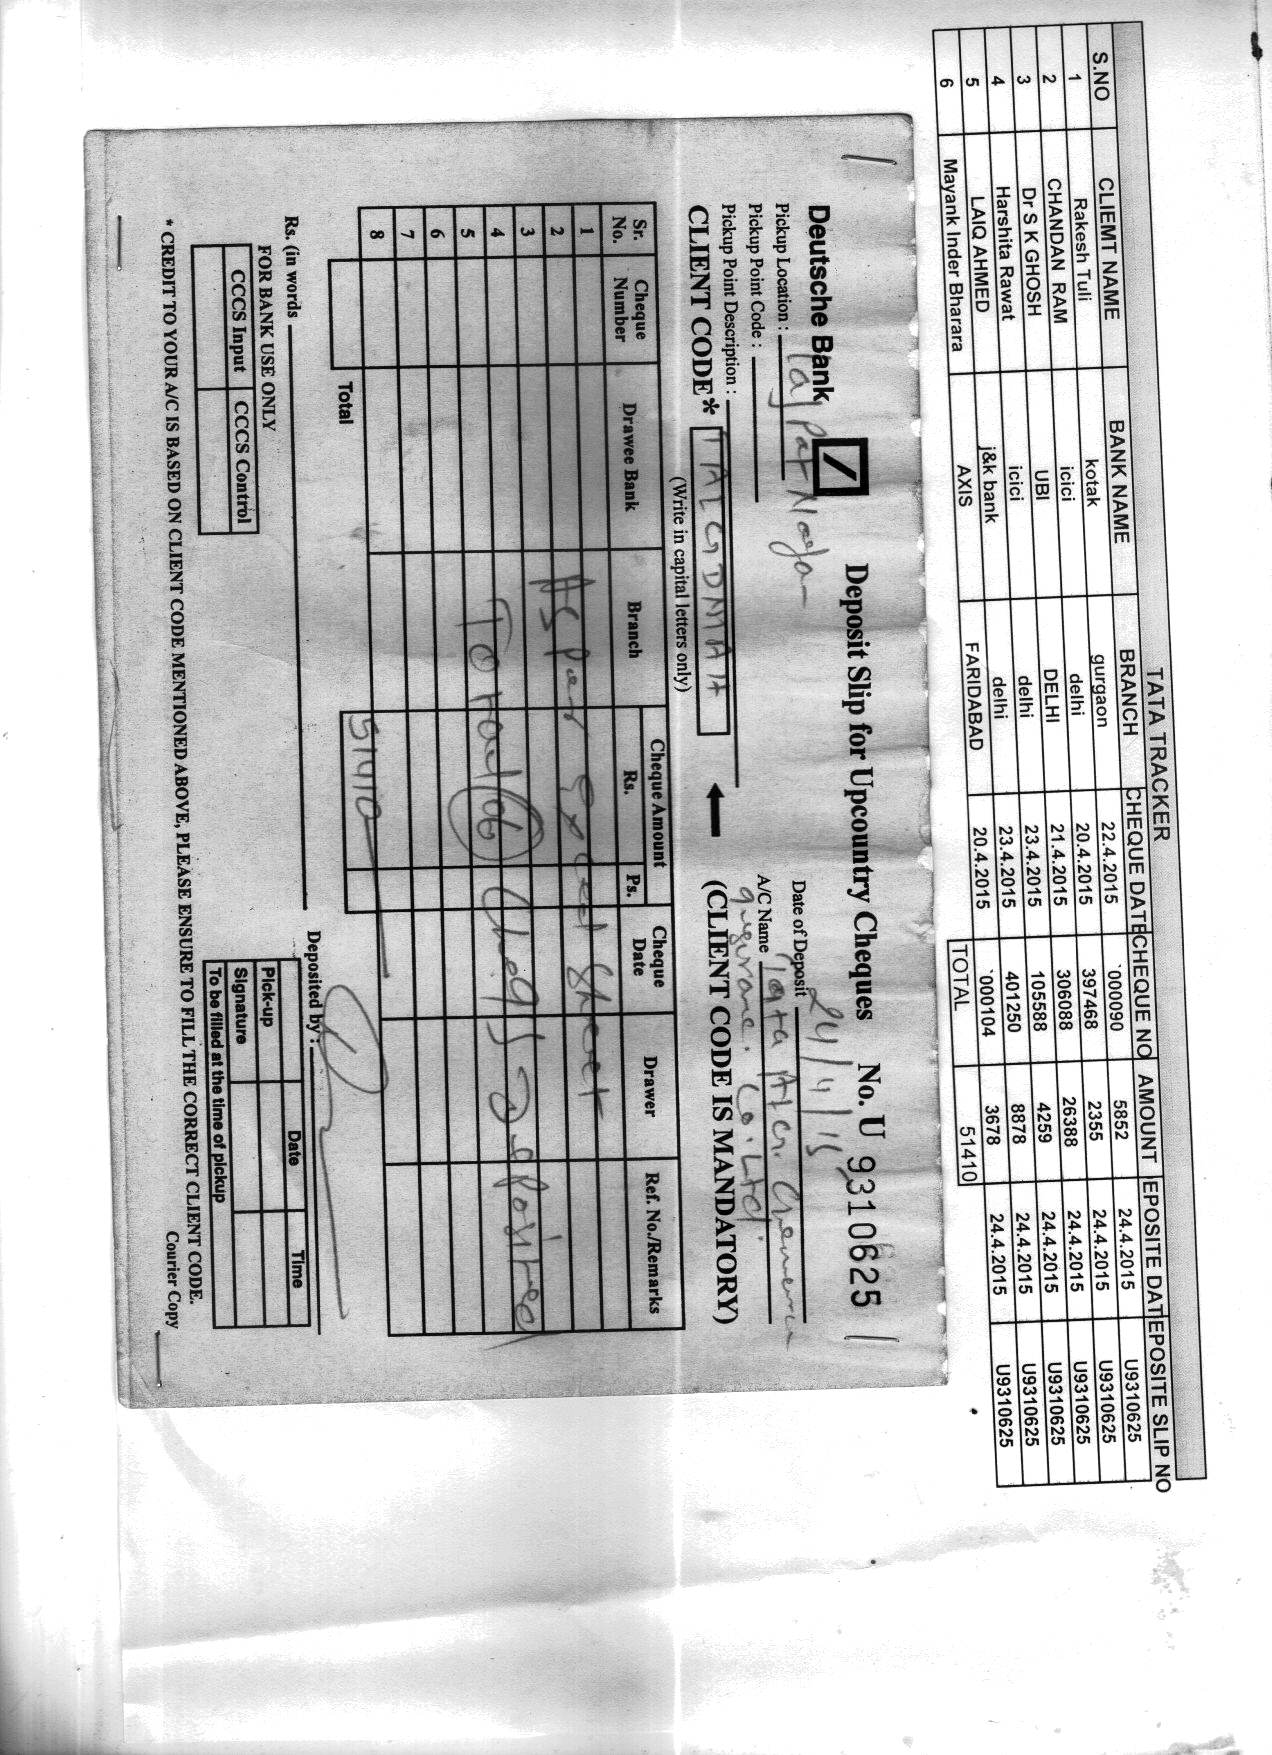 TATA TRACKER
S.NO CLIEMT NAME BANK NAME BRANCH CHEQUE DATE CHEQUE NO AMOUNT EPOSITE DATE EPOSITE SLIP NO
1 Rakesh Tuli kotak gurgaon 22.4.2015 `000090 5852 24.4.2015 U9310625
2 CHANDAN RAM icici delhi 20.4.2015 397468 2355 24.4.2015 U9310625
3 Dr S K GHOSH UBI DELHI 21.4.2015 306088 26388 24.4.2015 U9310625
4 Harshita Rawat icici delhi 23.4.2015 105588 4259 24.4.2015 U9310625
5 LAIQ AHMED j&k bank delhi 23.4.2015 401250 8878 24.4.2015 U9310625
6 Mayank Inder Bharara AXIS FARIDABAD 20.4.2015 `000104 3678 24.4.2015 U9310625
TOTAL 51410
Deutsche Bank Deposit Slip for Upcountry Cheques No. U 9310625
Pickup Location : Lajpat Nagar Date of Deposit 24/4/15
Pickup Point Code : A/C Name Tata
Pickup Point Description : Insurance Co. Ltd.
CLIENT CODE* (CLIENT CODE IS MANDATORY)
(Write in capital letters only)
Sr. No. Cheque Number Drawee Bank Branch Cheque Amount Rs. Ps. Cheque Date Drawer Ref. No./Remarks
1
2 As per Excel Sheet
3
4 Total (06) Cheqs Deposited
5
6
7
8
Total 51410
Rs. (in words Deposited by :
FOR BANK USE ONLY
CCCS Input CCCS Control
Date Time
Pick-up
Signature
To be filled at the time of pickup
* CREDIT TO YOUR A/C IS BASED ON CLIENT CODE MENTIONED ABOVE, PLEASE ENSURE TO FILL THE CORRECT CLIENT CODE.
Courier Copy